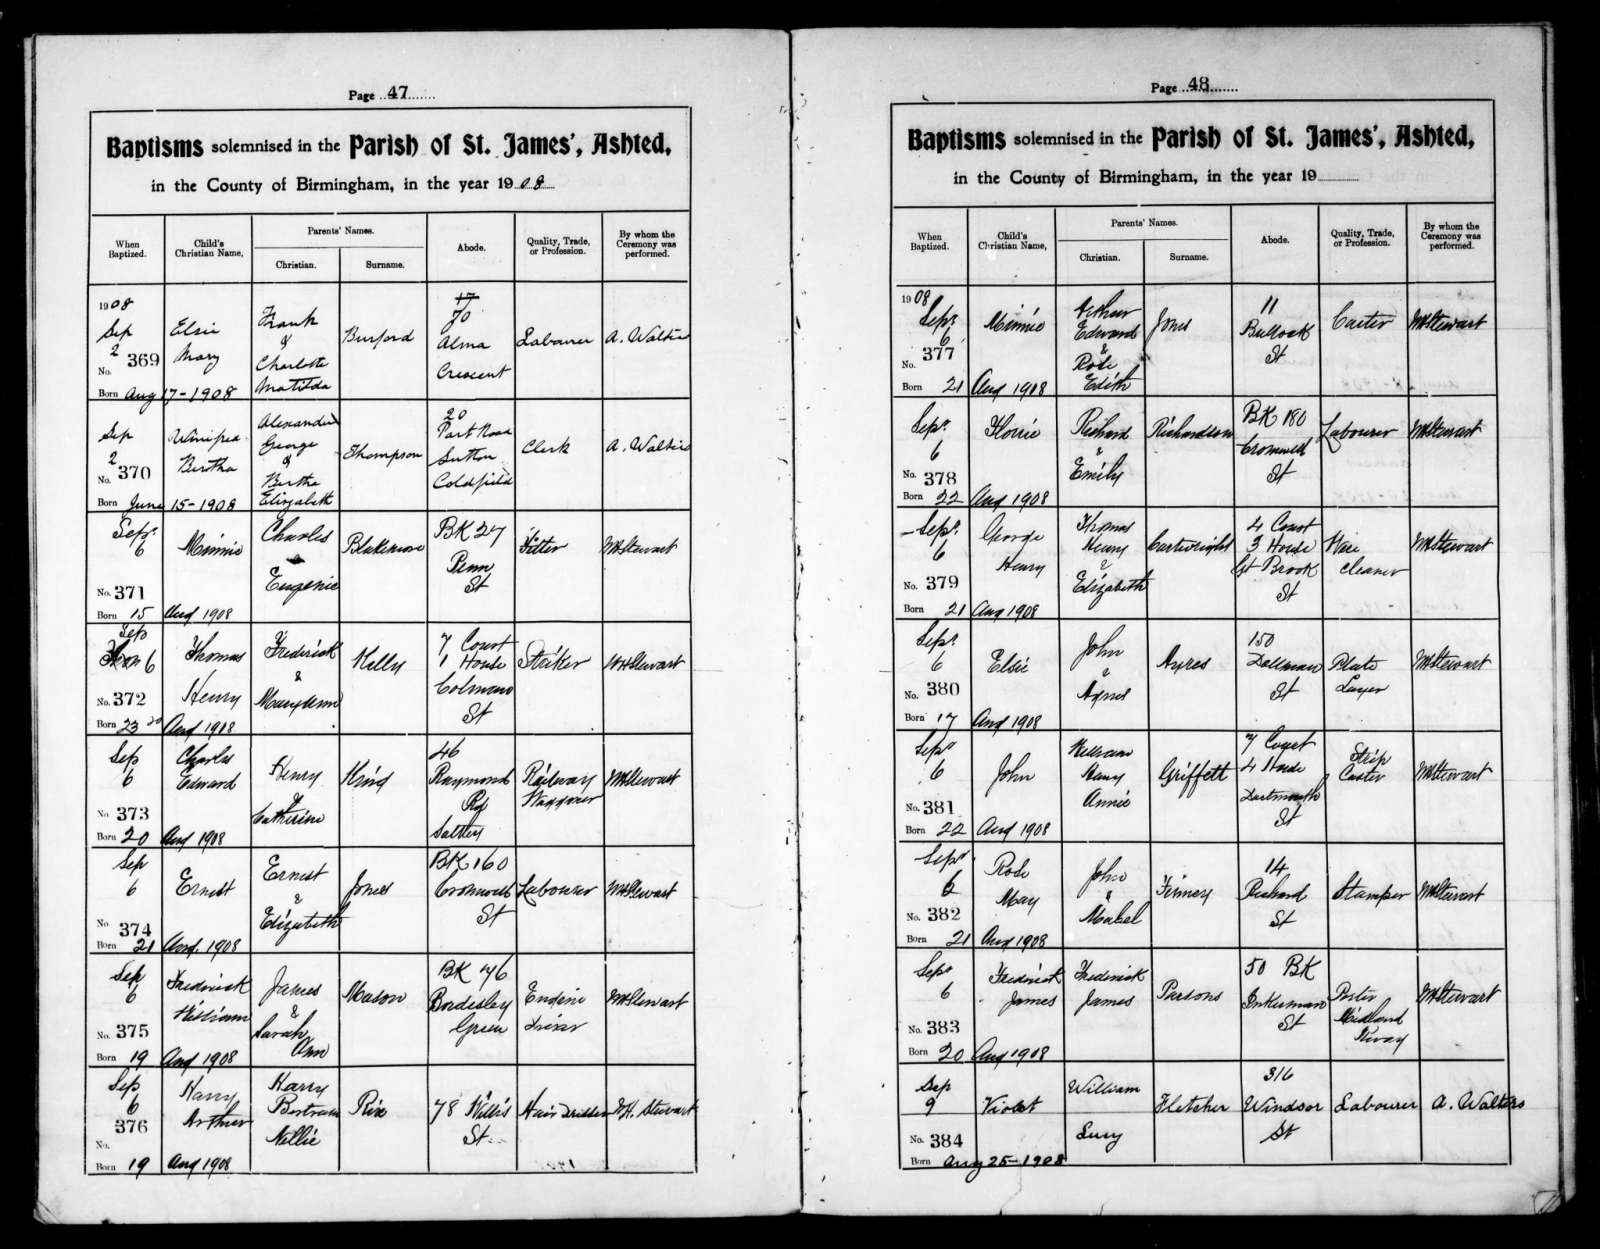 Page 47
Baptisms solemnised in the Parish of St. James', Ashted,
in the County of Birmingham, in the year 1908
When Baptized. Child's Christian Name, Parents' Names. Christian. Surname. Abode. Quality, Trade, or Profession. By whom the Ceremony was performed.
1908 Sep 2 Elsie Mary Frank & Charlotte Matilda Burford 17 70 Alma Crescent Labourer A. Walters
No. 369
Born Aug 17-1908
Sep 2 Winifred Bertha Alexander George & Bertha Elizabeth Thompson 20 Park Road Sutton Coldfield Clerk A. Walters
No. 370
Born June 15-1908
Sepr. 6 Minnie Charles & Eugenie Blakemore BK 27 Penn St Fitter WH Stewart
No. 371
Born 15 Aug 1908
Sep 6 Thomas Henry Frederick & Mary Ann Kelly 7 Court 1 House Colman St Stoker WH Stewart
No. 372
Born 23 Aug 1908
Sep 6 Charles Edward Henry & Catherine King 46 Raymond Rd Saltley Railway Waggoner WH Stewart
No 373
Born 20 Aug 1908
Sep 6 Ernest Ernest & Elizabeth Jones BK 160 Cromwell St Labourer WH Stewart
No 374
Born 21 Aug. 1908
Sep 6 Frederick William James & Sarah Ann Mason BK 76 Bordesley Green Engine Driver WH Stewart
No. 375
Born 19 Aug 1908
Sep 6 Harry Arthur Harry Bertram Nellie Rix 78 Willis St Hair Dresser W.H. Stewart
No. 376
Born 19 Aug 1908
Page 48
Baptisms solemnised in the Parish of St. James', Ashted,
in the County of Birmingham, in the year 19
When Baptized. Child's Christian Name, Parents' Names. Christian. Surname. Abode. Quality, Trade, or Profession. By whom the Ceremony was performed.
1908 Sepr. 6 Minnie Arthur Edward & Rose Edith Jones 11 Bullock St Carter WH Stewart
No. 377
Born 21 Aug 1908
Sepr. 6 Florrie Richard & Emily Richardson BK 180 Cromwell St Labourer WH Stewart
No. 378
Born 22 Aug 1908
Sepr. 6 George Henry Thomas Henry & Elizabeth Cartwright 4 Court 3 House Gt Brook St Wire Cleaner WH Stewart
No. 379
Born 21 Aug 1908
Sepr. 6 Elsie John & Agnes Ayres 150 Dollman St Plate Layer WH Stewart
No. 380
Born 17 Aug 1908
Sepr 6 John William Harry Annie Griffett 7 Court 4 House Dartmouth St Strip Caster WH Stewart
No. 381
Born 22 Aug 1908
Sepr 6 Rose May John & Mabel Finney 14 Richard St Stamper WH Stewart
No. 382
Born 21 Aug 1908
Sepr 6 Frederick James Frederick James Parsons 50 BK Inkerman St Porter Midland Rway WH Stewart
No. 383
Born 20 Aug 1908
Sep 9 Violet William Lucy Fletcher 316 Windsor St Labourer A. Walters
No. 384
Born Aug 25-1908